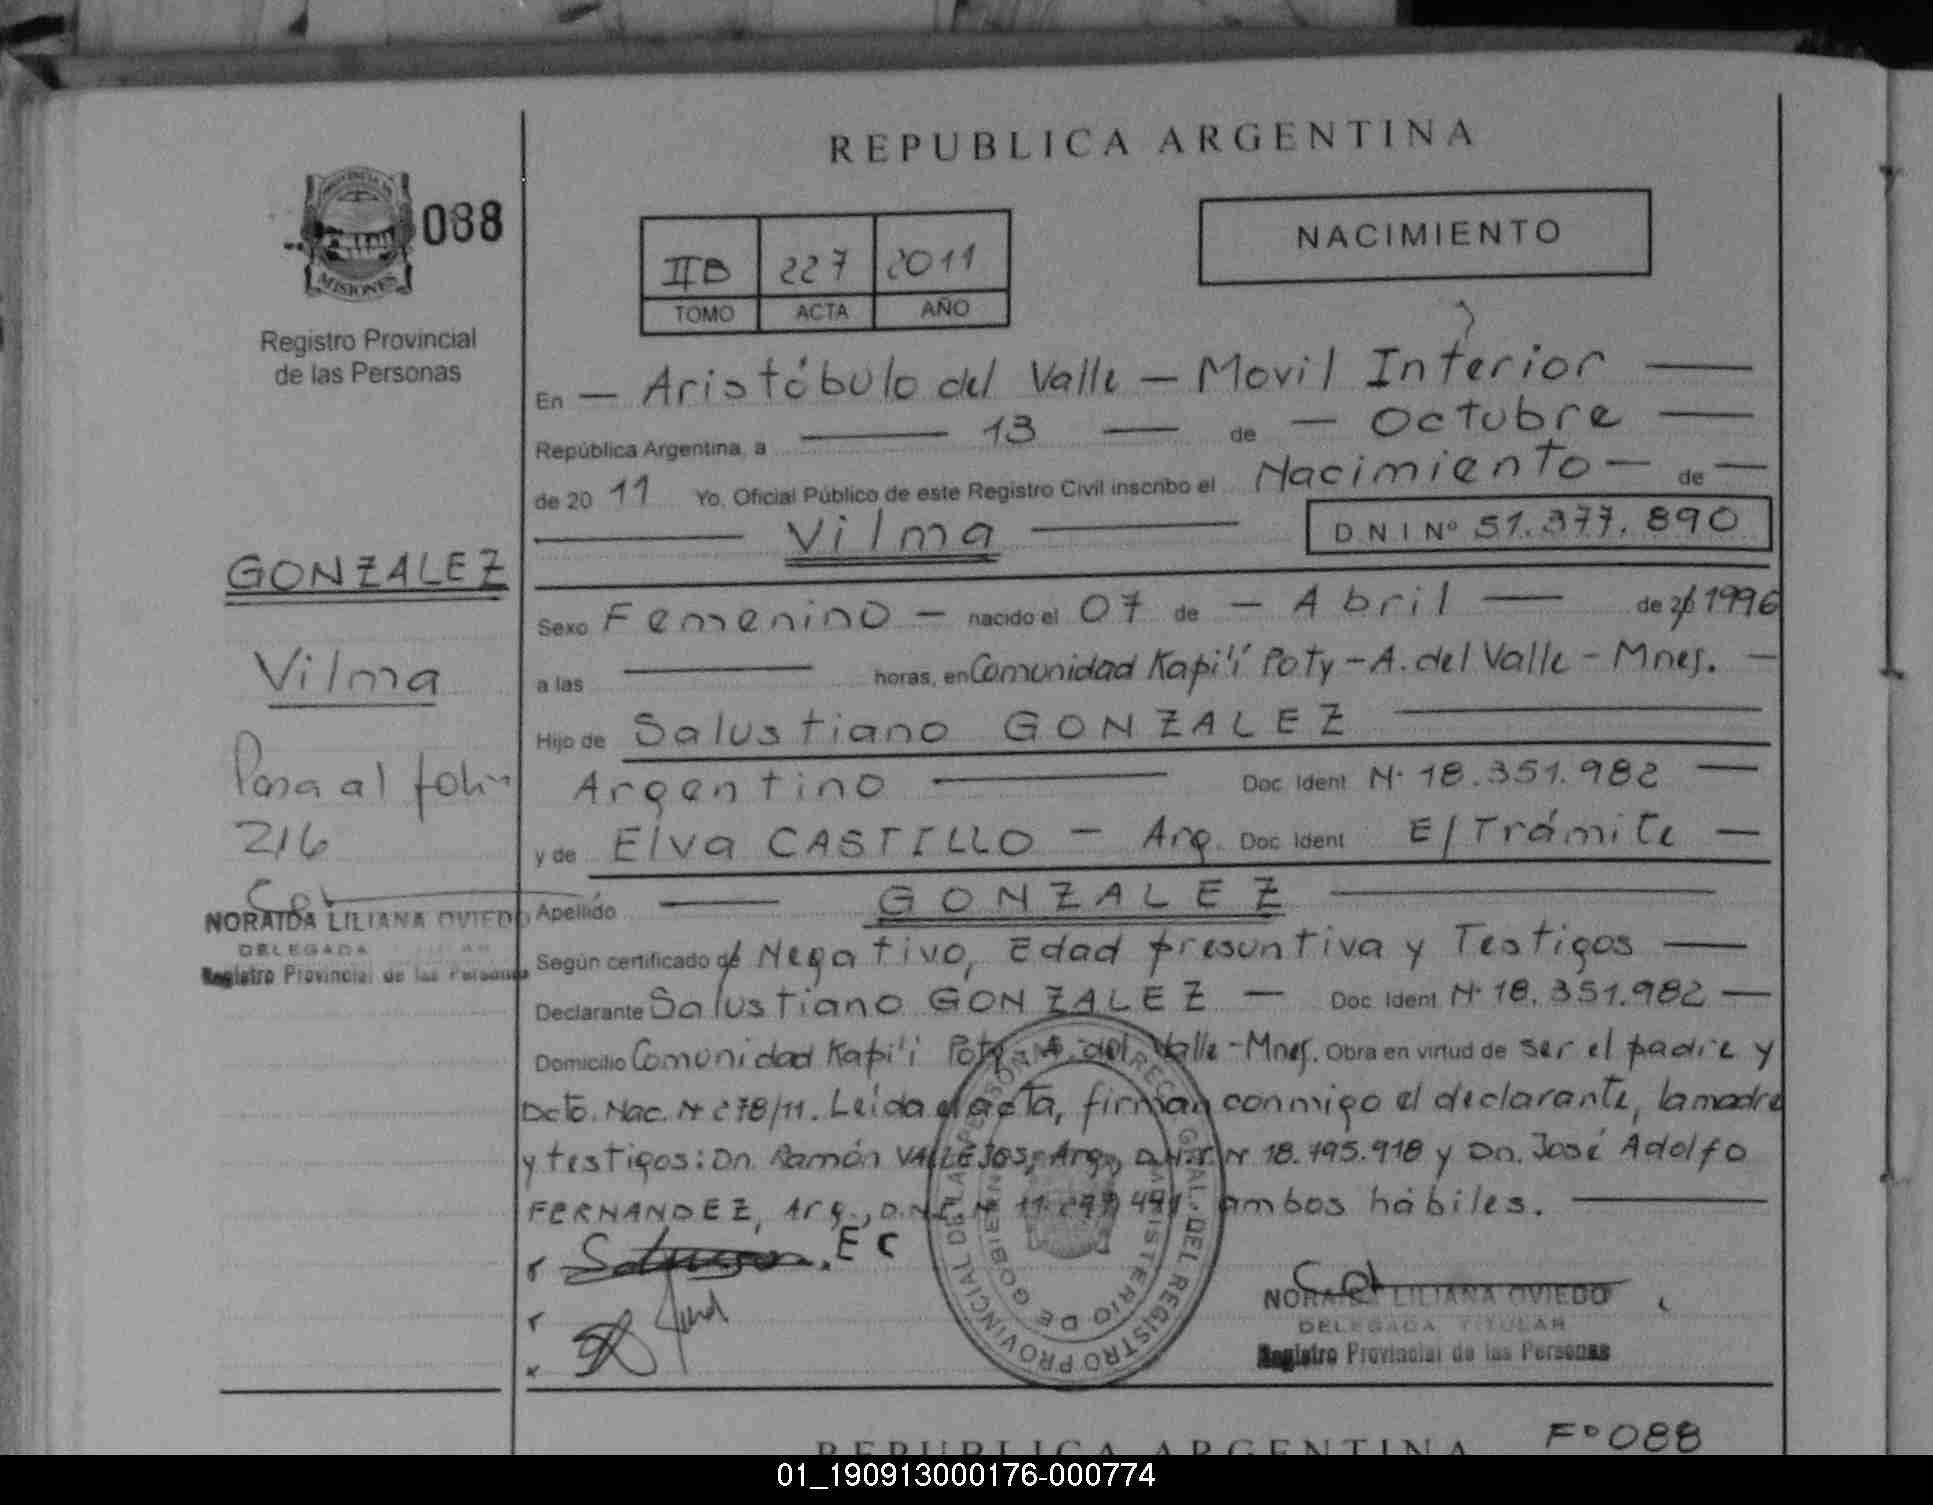 REPUBLICA ARGENTINA
PROVINCIA DE
MISIONES
088
Registro Provincial
de las Personas
IIB 227 2011
TOMO ACTA AÑO
NACIMIENTO
En — Aristóbulo del Valle — Movil Interior —
República Argentina, a — 13 — de — Octubre —
de 20 11 Yo, Oficial Público de este Registro Civil inscribo el Nacimiento — de —
— Vilma — D N I Nº 51.377.890
GONZALEZ
Vilma
Pasa al folio
216
NORAIDA LILIANA OVIEDO
DELEGADA
Registro Provincial de las Personas
Sexo Femenino — nacido el 07 de — Abril — de 20 1996
a las — horas, en Comunidad Kapi'i Poty – A. del Valle – Mnes. —
Hijo de Salustiano GONZALEZ —
Argentino — Doc Ident Nº 18.351.982 —
y de Elva CASTILLO — Arg. Doc Ident E/Trámite —
Apellido — GONZALEZ —
Según certificado de Negativo, Edad presuntiva y Testigos —
Declarante Salustiano GONZALEZ — Doc Ident Nº 18.351.982 —
Domicilio Comunidad Kapi'i Poty – A. del Valle – Mnes. Obra en virtud de ser el padre y
Dcto. Nac. Nº 278/11. Leida el acta, firman conmigo el declarante, la madre
y testigos: Dn. Ramón VALLEJOS, Arg., D.N.I. Nº 18.795.918 y Dn. José Adolfo
FERNANDEZ, Arg., D.N.I. Nº ambos hábiles. —
E C
REGISTRO PROVINCIAL DE LAS PERSONAS
MINISTERIO DE GOBIERNO
NORAIDA LILIANA OVIEDO
DELEGADA TITULAR
Registro Provincial de las Personas
REPUBLICA ARGENTINA
Fº 088
01_190913000176-000774